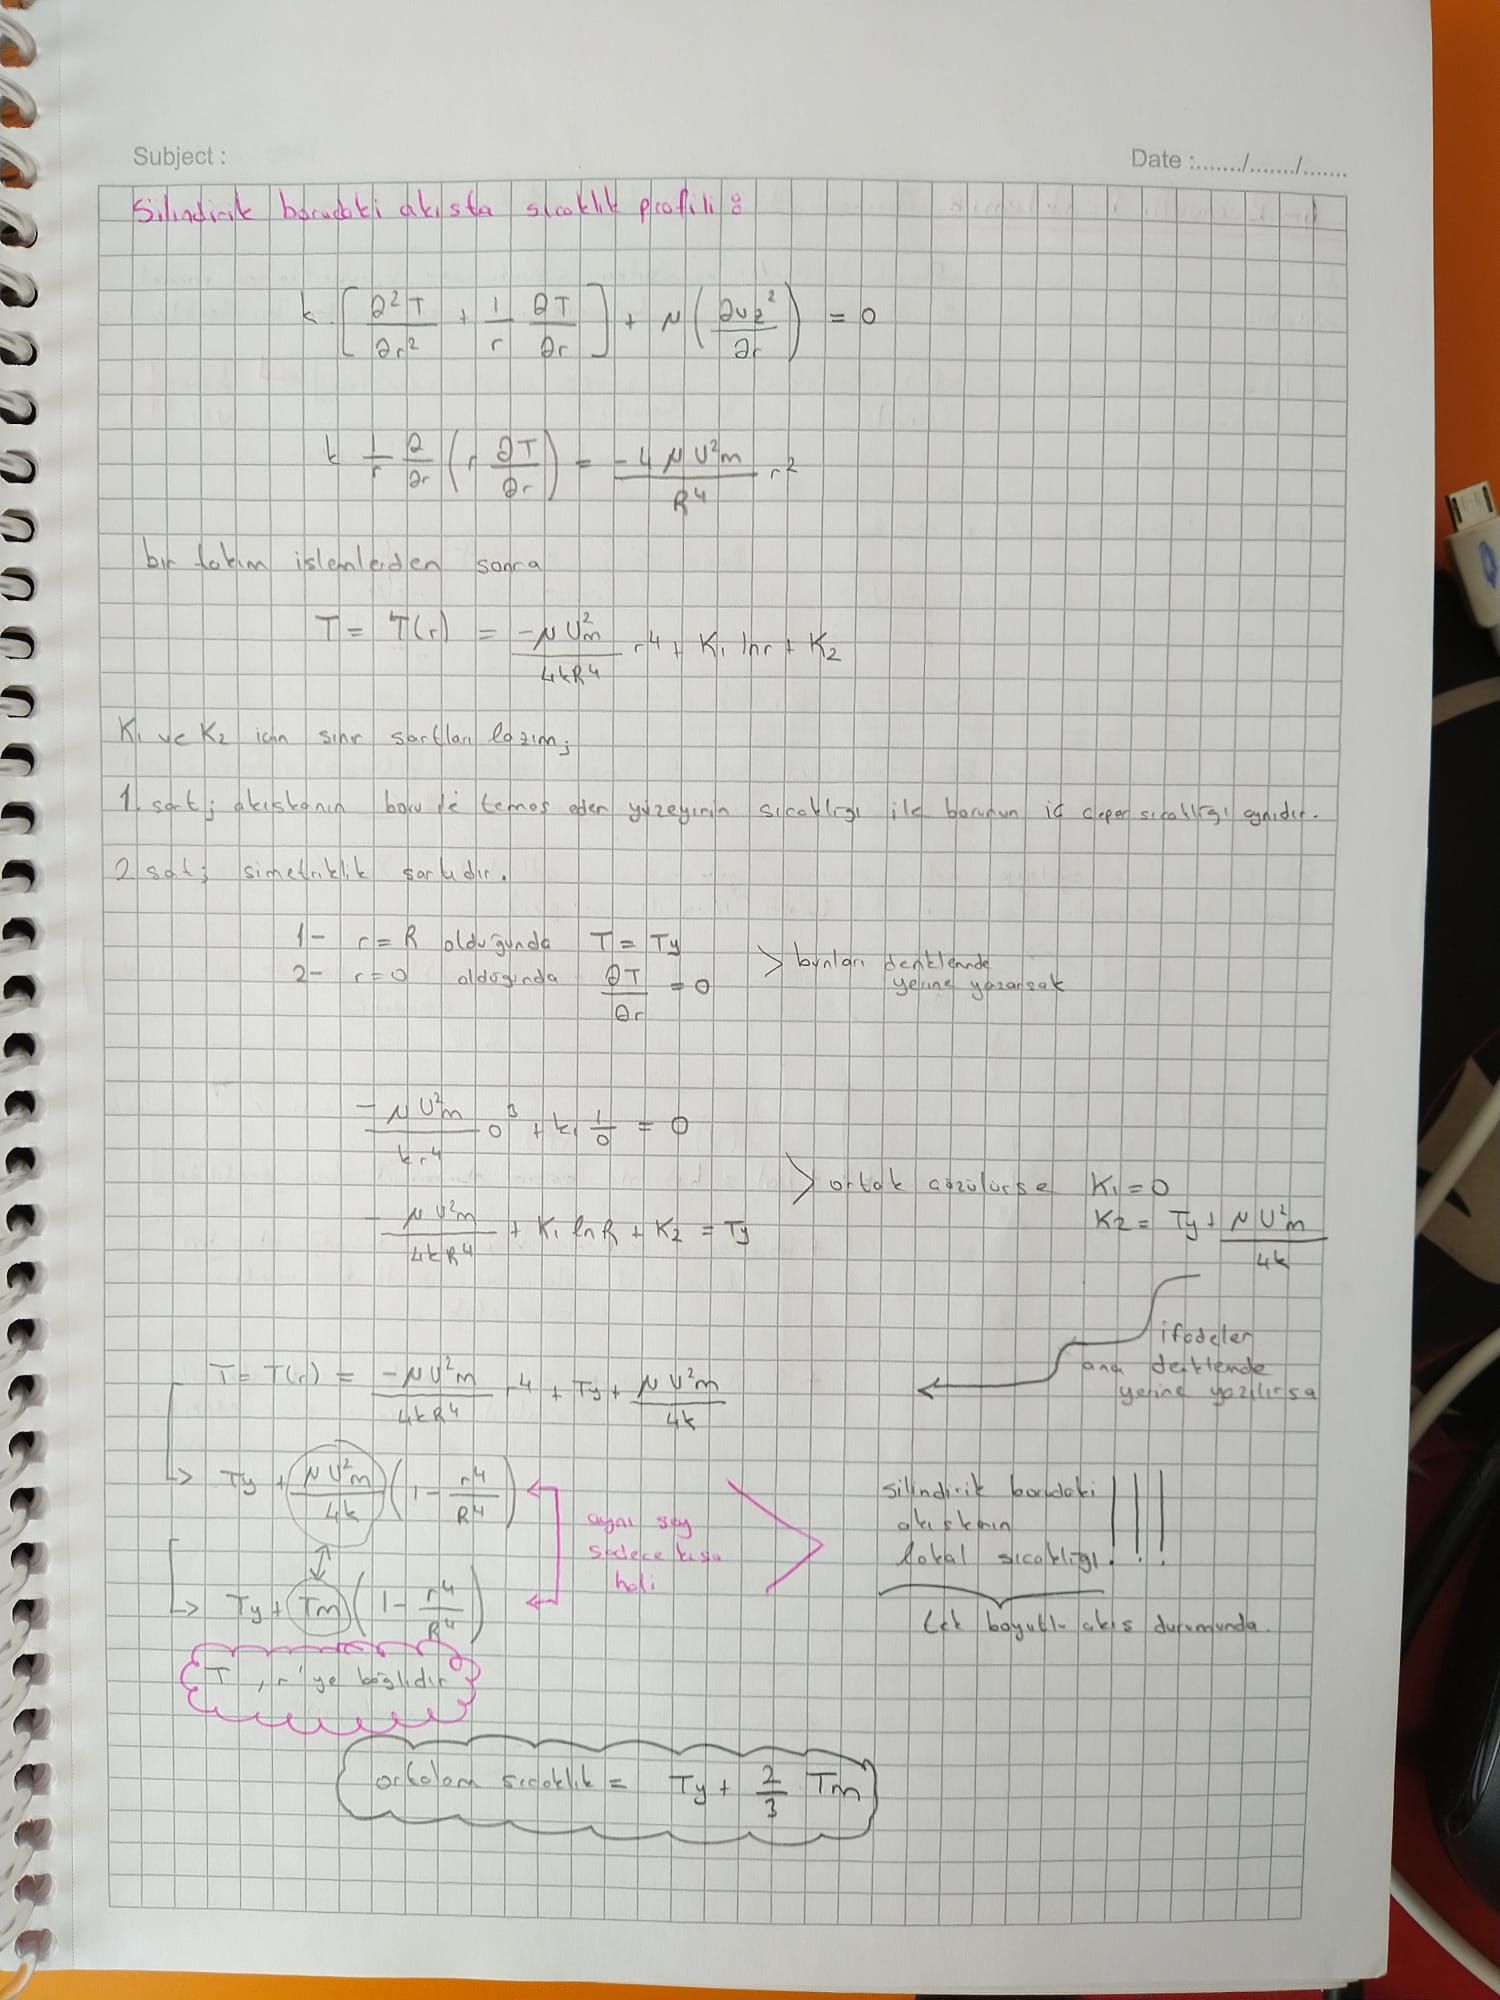 Subject :
Date :......./......./.......
Silindirik borudaki akışta sıcaklık profili :
k [ ∂²T/∂r² + 1/r ∂T/∂r ] + μ ( ∂υz²/∂r ) = 0
k 1/r ∂/∂r ( r ∂T/∂r ) = -4 μ U²m / R⁴ r²
bir takım işlemlerden sonra
T = T(r) = -μ U²m / 4kR⁴ r⁴ + K₁ lnr + K₂
K₁ ve K₂ için sınır şartları lazım;
1. şart; akışkanın boru ile temas eden yüzeyinin sıcaklığı ile borunun iç çeper sıcaklığı aynıdır.
2 şart; simetriklik şartıdır.
1- r = R olduğunda T = Ty
2- r = 0 olduğunda ∂T/∂r = 0 > bunları denklemde yerine yazarsak
- μ U²m / kr⁴ 0³ + k₁ 1/0 = 0
- μ U²m / 4kR⁴ + K₁ lnR + K₂ = Ty > ortak çözülürse K₁ = 0
K₂ = Ty + μ U²m / 4k
ifadeler
ana denklemde
yerine yazılırsa
T = T(r) = -μ U²m / 4kR⁴ r⁴ + Ty + μ U²m / 4k
Ty + μ U²m / 4k ( 1 - r⁴/R⁴ )
aynı şey
sadece kısa
hali
silindirik borudaki
akışkanın
lokal sıcaklığı !!!
Ty + Tm ( 1 - r⁴/R⁴ )
tek boyutlu akış durumunda.
T , r'ye bağlıdır
ortalama sıcaklık = Ty + 2/3 Tm